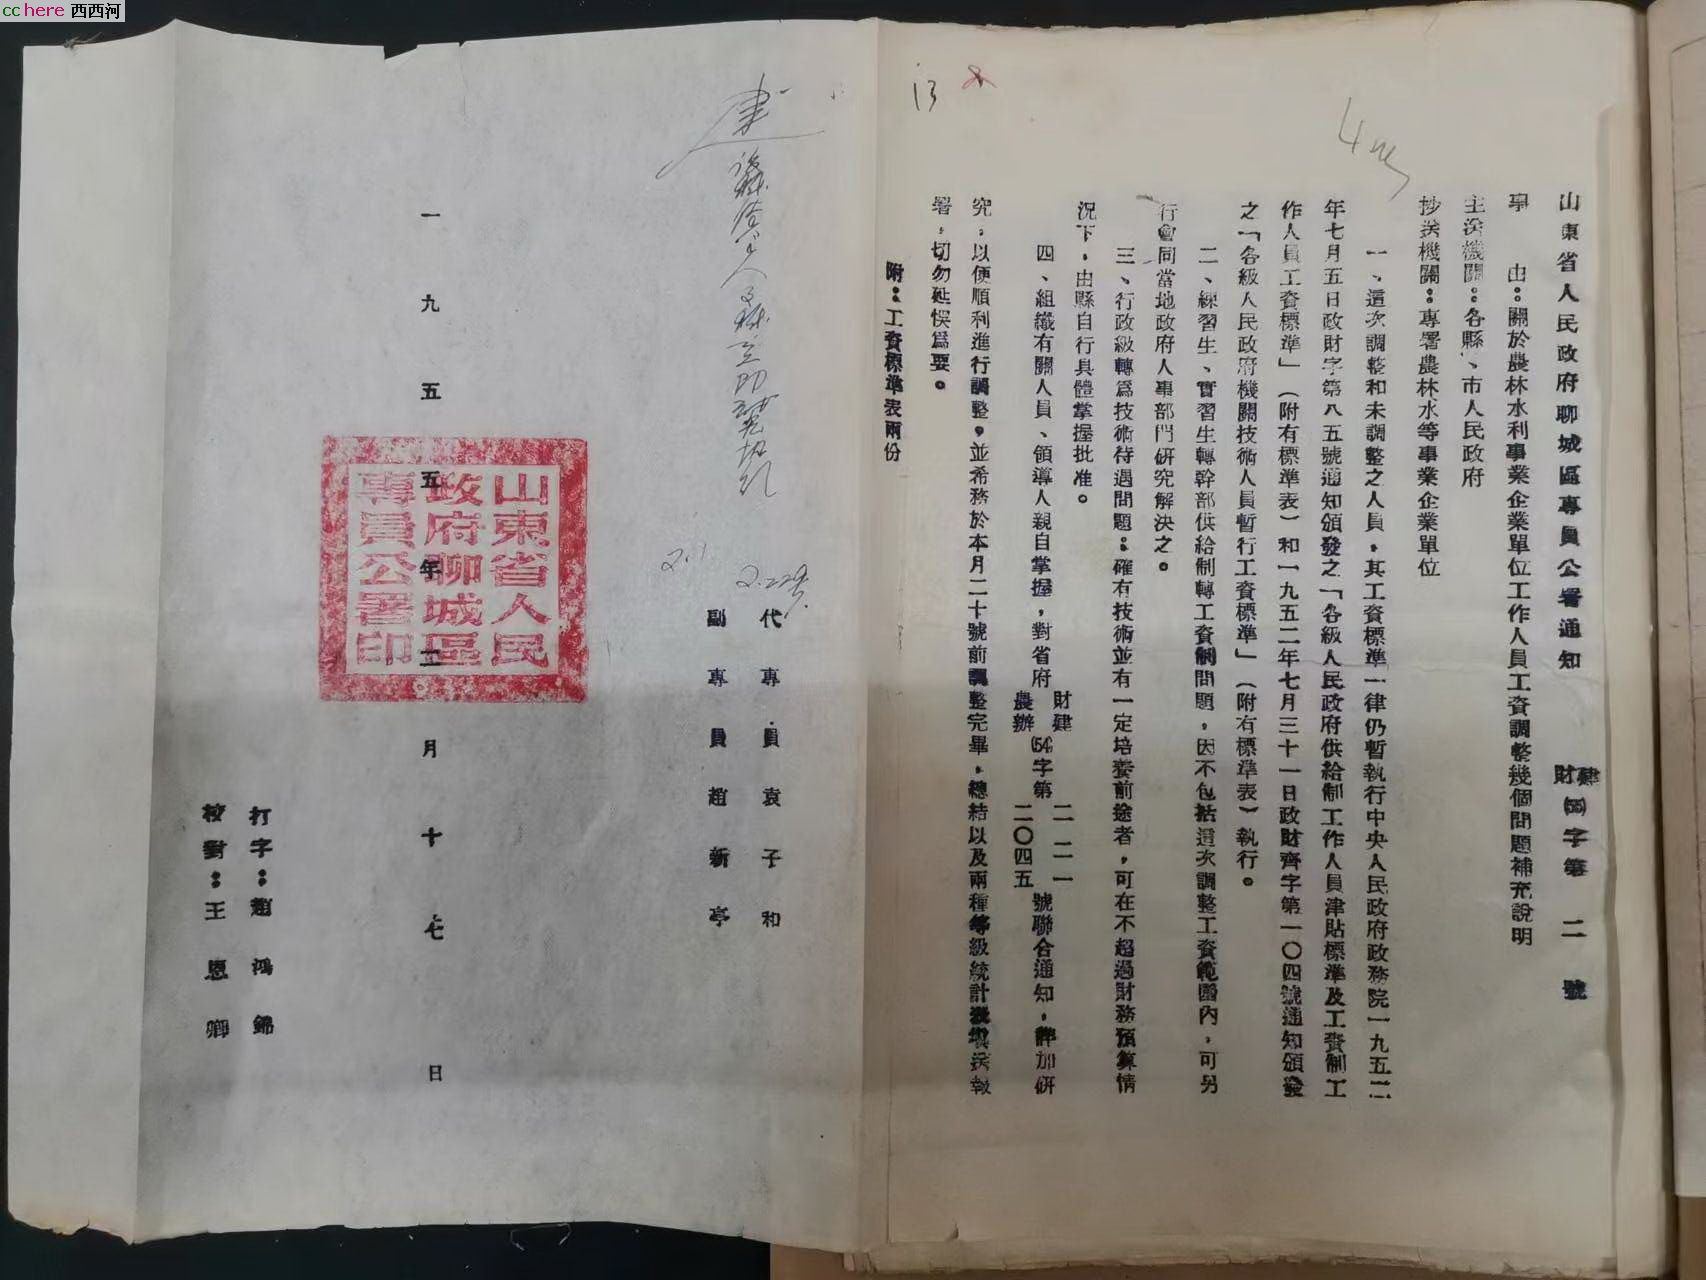 cchere 西西河
13
山東省人民政府聊城區專員公署通知
財建(55)字第二號
事由：關於農林水利事業企業單位工作人員工資調整幾個問題補充說明
主送機關：各縣、市人民政府
抄送機關：專署農林水等事業企業單位
一、這次調整和未調整之人員，其工資標準一律仍暫執行中央人民政府政務院一九五二
年七月五日政財字第八五號通知頒發之「各級人民政府供給制工作人員津貼標準及工資制工
作人員工資標準」（附有標準表）和一九五二年七月三十一日政財齊字第一〇四號通知頒發
之「各級人民政府機關技術人員暫行工資標準」（附有標準表）執行。
二、練習生、實習生轉幹部供給制轉工資制問題，因不包括這次調整工資範圍內，可另
行會同當地政府人事部門研究解決之。
三、行政級轉爲技術待遇問題：確有技術並有一定培養前途者，可在不超過財務預算情
況下，由縣自行具體掌握批准。
四、組織有關人員、領導人親自掌握，對省府財建農辦(54)字第二二一二〇四五號聯合通知，詳加研
究，以便順利進行調整，並希務於本月二十號前調整完畢，總結以及兩種等級統計表填送報
署，切勿延悞爲要。
附：工資標準表兩份
代專員袁子和
副專員趙新亭
一九五五年二月十七日
山東省人民
政府聊城區
專員公署印
打字：趙鴻錦
校對：王恩卿